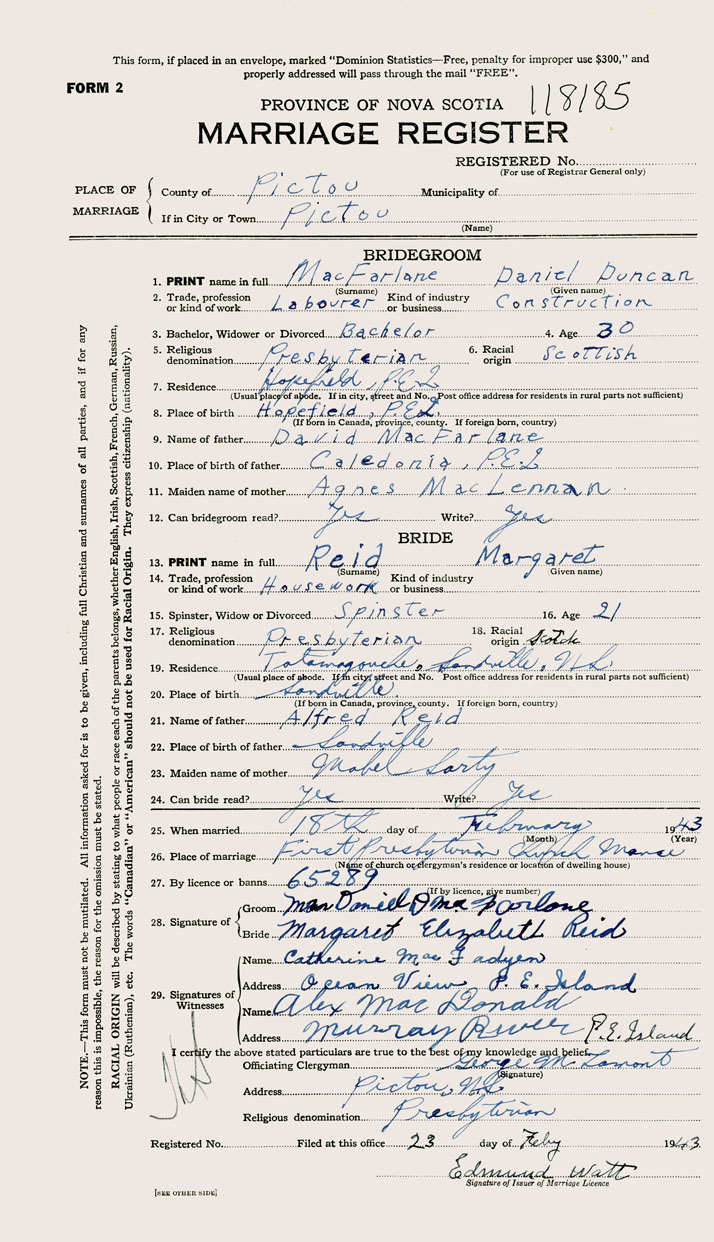 This form, if placed in an envelope, marked "Dominion Statistics—Free, penalty for improper use $300," and
properly addressed will pass through the mail "FREE".
FORM 2
118185
PROVINCE OF NOVA SCOTIA
MARRIAGE REGISTER
REGISTERED No.
(For use of Registrar General only)
PLACE OF MARRIAGE
County of Pictou Municipality of
If in City or Town Pictou
(Name)
BRIDEGROOM
1. PRINT name in full MacFarlane Daniel Duncan
(Surname) (Given name)
2. Trade, profession or kind of work Labourer Kind of industry or business Construction
3. Bachelor, Widower or Divorced Bachelor 4. Age 30
5. Religious denomination Presbyterian 6. Racial origin Scottish
7. Residence Hopefield, P.E.I
(Usual place of abode. If in city, street and No. Post office address for residents in rural parts not sufficient)
8. Place of birth Hopefield, P.E.I.
(If born in Canada, province, county. If foreign born, country)
9. Name of father David MacFarlane
10. Place of birth of father Caledonia, P.E.I
11. Maiden name of mother Agnes MacLennan
12. Can bridegroom read? Yes Write? Yes
BRIDE
13. PRINT name in full Reid Margaret
(Surname) (Given name)
14. Trade, profession or kind of work Housework Kind of industry or business
15. Spinster, Widow or Divorced Spinster 16. Age 21
17. Religious denomination Presbyterian 18. Racial origin Scotch
19. Residence Tatamagouche, Sandville, N.S
(Usual place of abode. If in city, street and No. Post office address for residents in rural parts not sufficient)
20. Place of birth Sandville
(If born in Canada, province, county. If foreign born, country)
21. Name of father Alfred Reid
22. Place of birth of father Sandville
23. Maiden name of mother Mabel
24. Can bride read? Yes Write? Yes
25. When married 18th day of February 1943
(Month) (Year)
26. Place of marriage First Presbyterian Manse
(Name of church or clergyman's residence or location of dwelling house)
27. By licence or banns 65289
(If by licence, give number)
28. Signature of
Groom Daniel D MacFarlane
Bride Margaret Elizabeth Reid
29. Signatures of Witnesses
Name Catherine MacFadyen
Address Ocean View, P. E. Island
Name Alex MacDonald
Address Murray River P.E. Island
I certify the above stated particulars are true to the best of my knowledge and belief.
Officiating Clergyman George M. Lamont
(Signature)
Address Pictou, N.S
Religious denomination Presbyterian
Registered No. Filed at this office 23 day of Feby 1943
Edmund Watt
Signature of Issuer of Marriage Licence
[SEE OTHER SIDE]
NOTE.—This form must not be mutilated. All information asked for is to be given, including full Christian and surnames of all parties, and if for any
reason this is impossible, the reason for the omission must be stated.
RACIAL ORIGIN will be described by stating to what people or race each of the parents belongs, whether English, Irish, Scottish, French, German, Russian,
Ukrainian (Ruthenian), etc. The words "Canadian" or "American" should not be used for Racial Origin. They express citizenship (nationality).